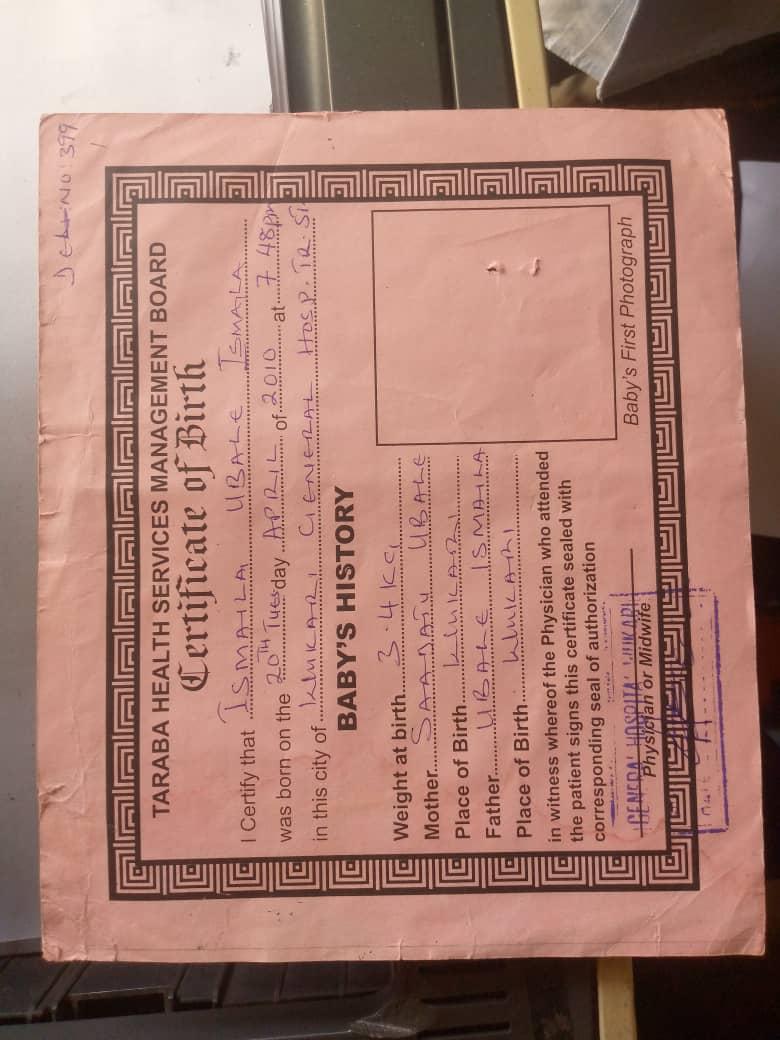 NO: 399
TARABA HEALTH SERVICES MANAGEMENT BOARD
Certificate of Birth
I Certify that ISMAILA UBALE ISMAILA
was born on the 20TH Tuesday APRIL of 2010 at 7 48pm
in this city of WUKARI GENERAL HOSP. TR. ST
BABY'S HISTORY
Weight at birth 3.4Kg
Mother SAADATU UBALE
Place of Birth WUKARI
Father UBALE ISMAILA
Place of Birth WUKARI
in witness whereof the Physician who attended
the patient signs this certificate sealed with
corresponding seal of authorization
GENERAL HOSPITAL WUKARI
Physician or Midwife
Baby's First Photograph